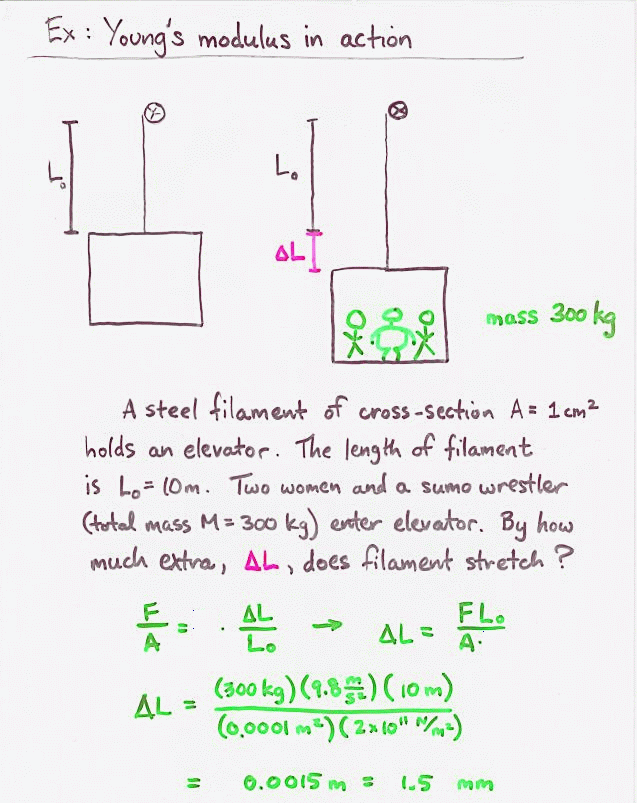 Ex: Young's modulus in action
L₀
L₀
ΔL
mass 300 kg
A steel filament of cross-section A = 1 cm²
holds an elevator. The length of filament
is L₀ = 10m. Two women and a sumo wrestler
(total mass M = 300 kg) enter elevator. By how
much extra, ΔL, does filament stretch?
F/A = · ΔL/L₀ → ΔL = F L₀/A·
ΔL = (300 kg)(9.8 m/s²)(10 m)/(0.0001 m²)(2×10¹¹ N/m²)
= 0.0015 m = 1.5 mm